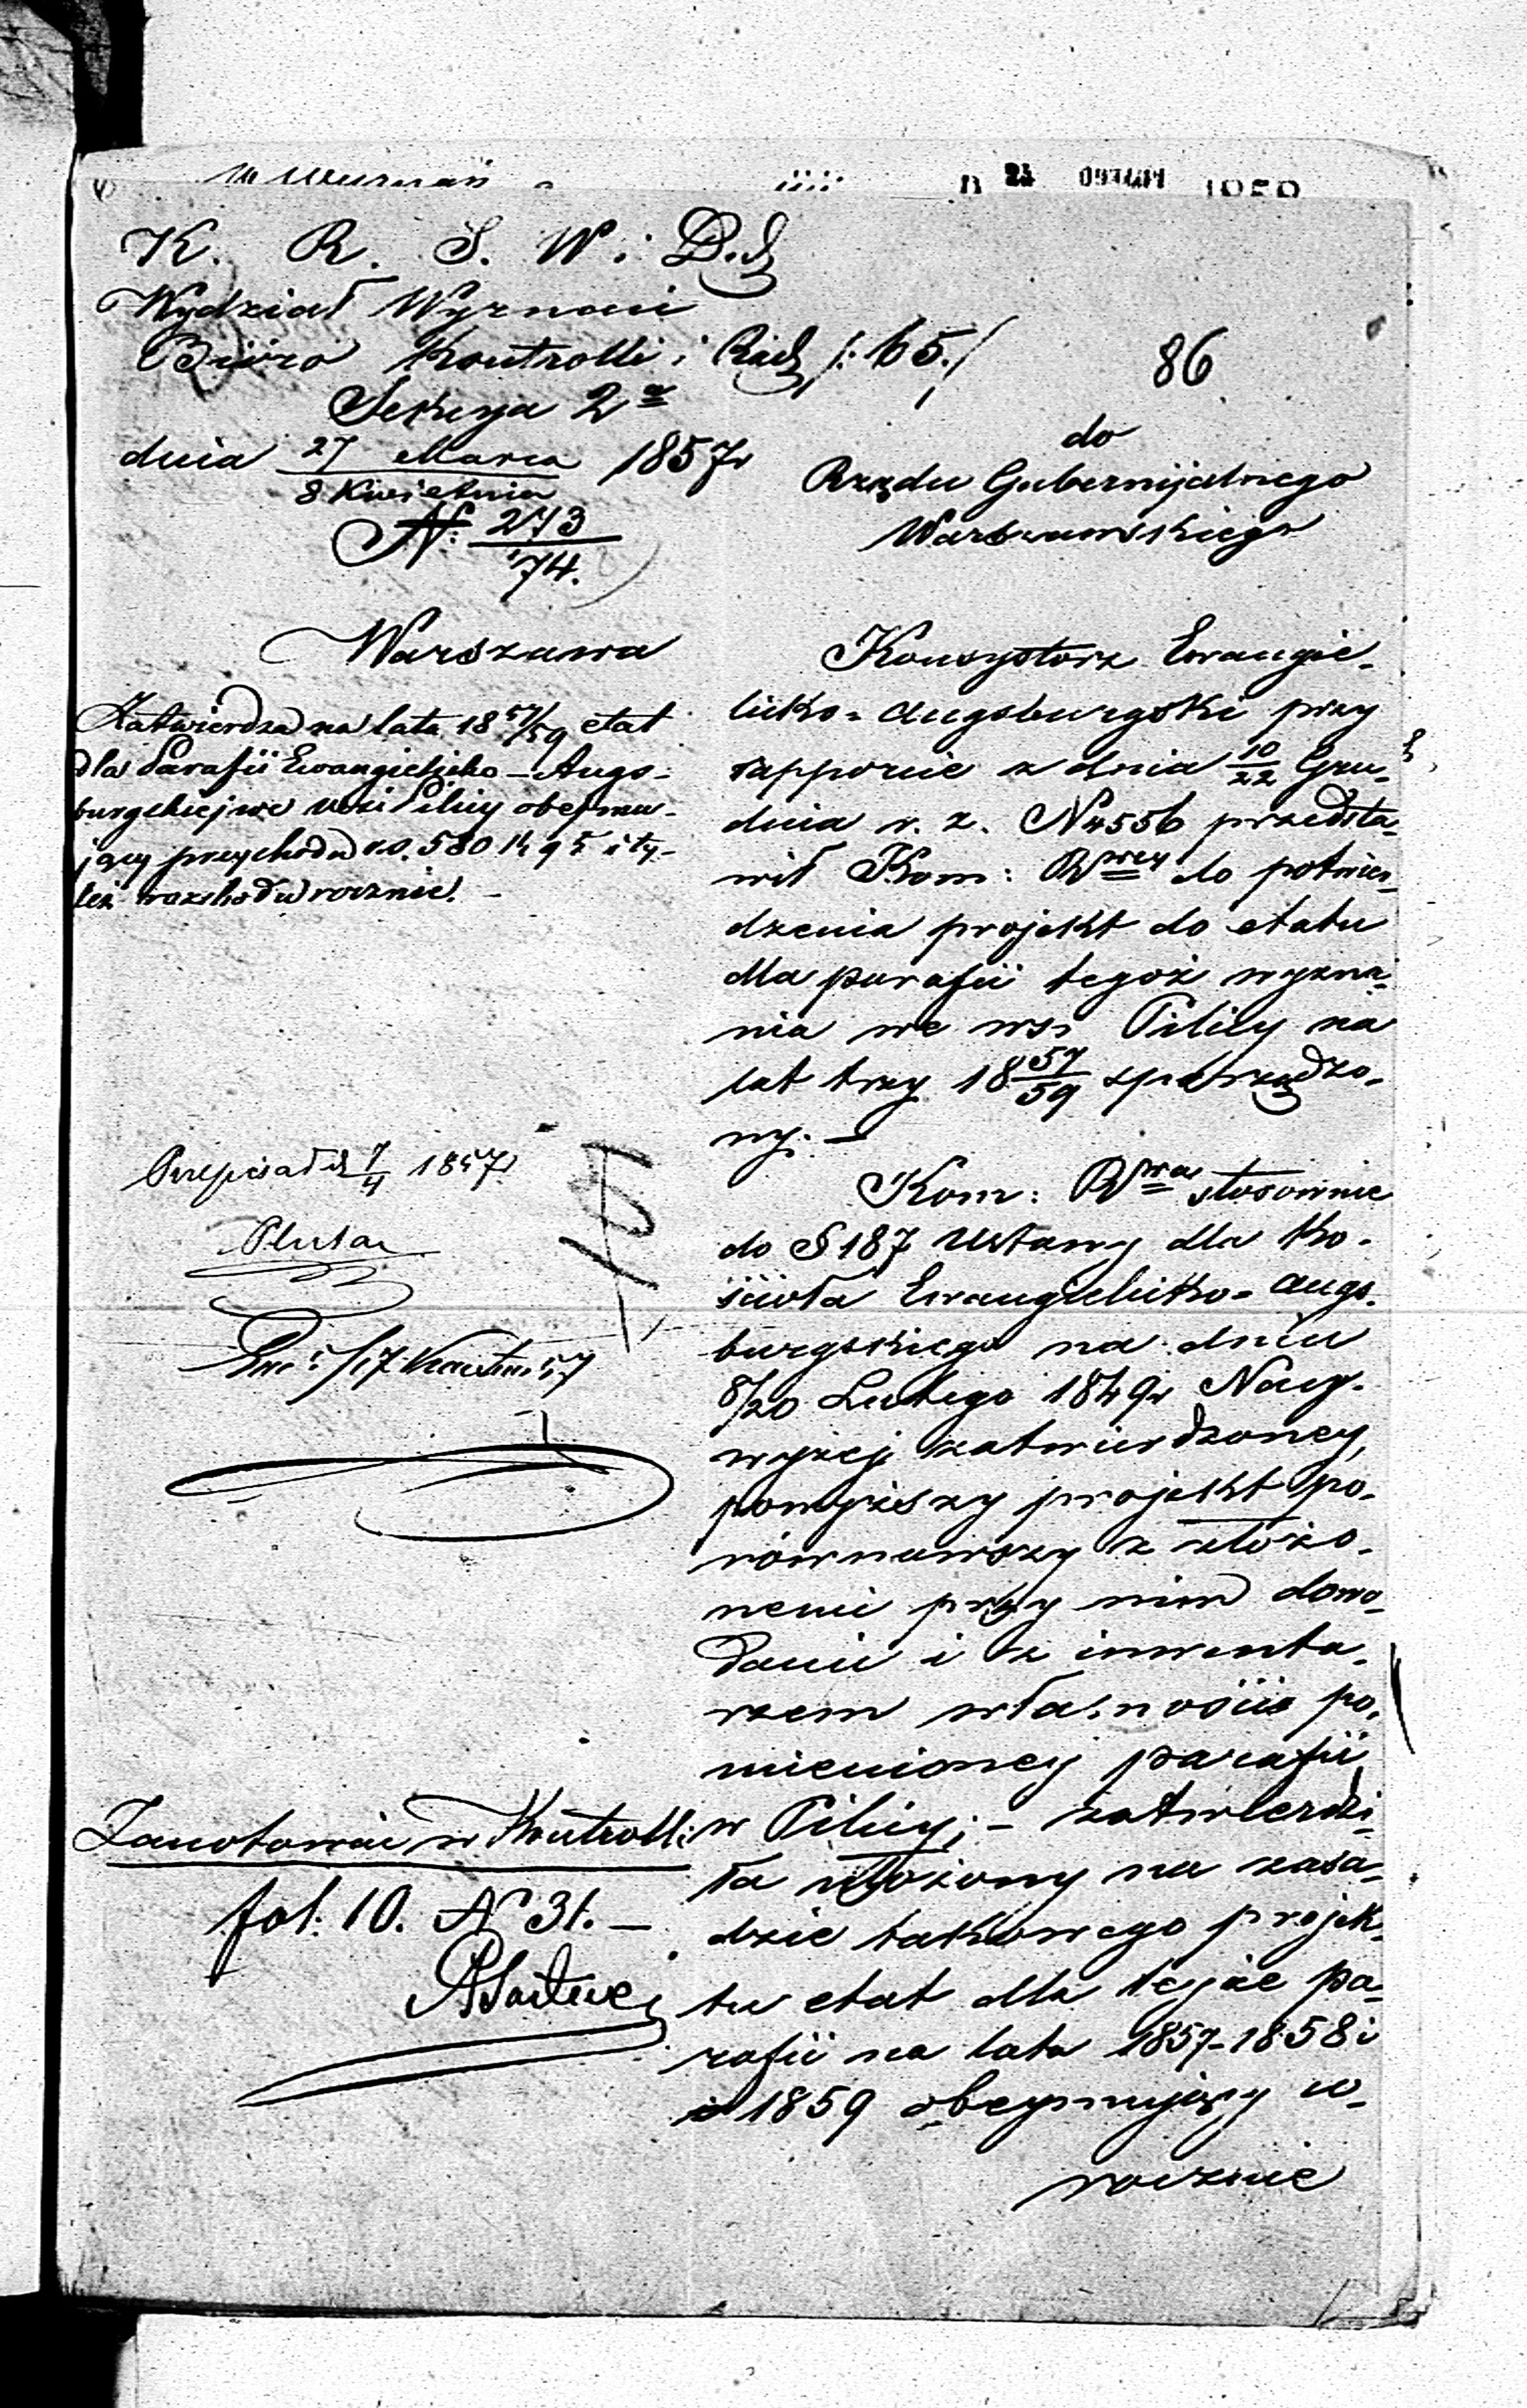 K. R. S. W. i D.
Wydział Wyznań
Biuro Kontrolli i Rach /: 65./
86
Sekcya 2a
dnia 27 Marca / 8 Kwietnia 1857r
N: 273/74.
do
Rządu Gubernijalnego
Warszawskiego
Warszawa
Zatwierdza na lata 1857/59 etat
dla Parafii Ewangielicko-Augs-
burgskiej we wsi Pilicy obejmu-
jący przychodu rs. 580 k 95 i ty-
leż rozchodu rocznie. -
Konsystorz Ewangie-
licko-Augsburgski przy
rapporcie z dnia 10/22 Gru-
dnia r. z. N 4556 przedsta-
wił Kom: Rwey do potwier-
dzenia projekt do etatu
dla parafii tegoż wyzna-
nia we wsi Pilicy na
lat trzy 1857/59 sporządzo-
ny. -
Kom: Rwa stosownie
do § 187 Ustawy dla Ko-
ścioła Ewangielicko-Augs-
burgskiego na dniu
8/20 Lutego 1849r Nay-
wyżej zatwierdzoney,
powyższy projekt po-
równawszy z złożo-
nemi przy nim dowo-
dami i z inwenta-
rzem własności po-
mienioney parafii
w Pilicy; - zatwierdzi-
ła ułożony na zasa-
dzie takowego projek-
tu etat dla tejże pa-
rafii na lata 1857-1858 i
1859 obeymujący w
rocznie
Przepisał d 7/4 1857
Zanotowano w Kontrolli
fol: 10. N 31. -